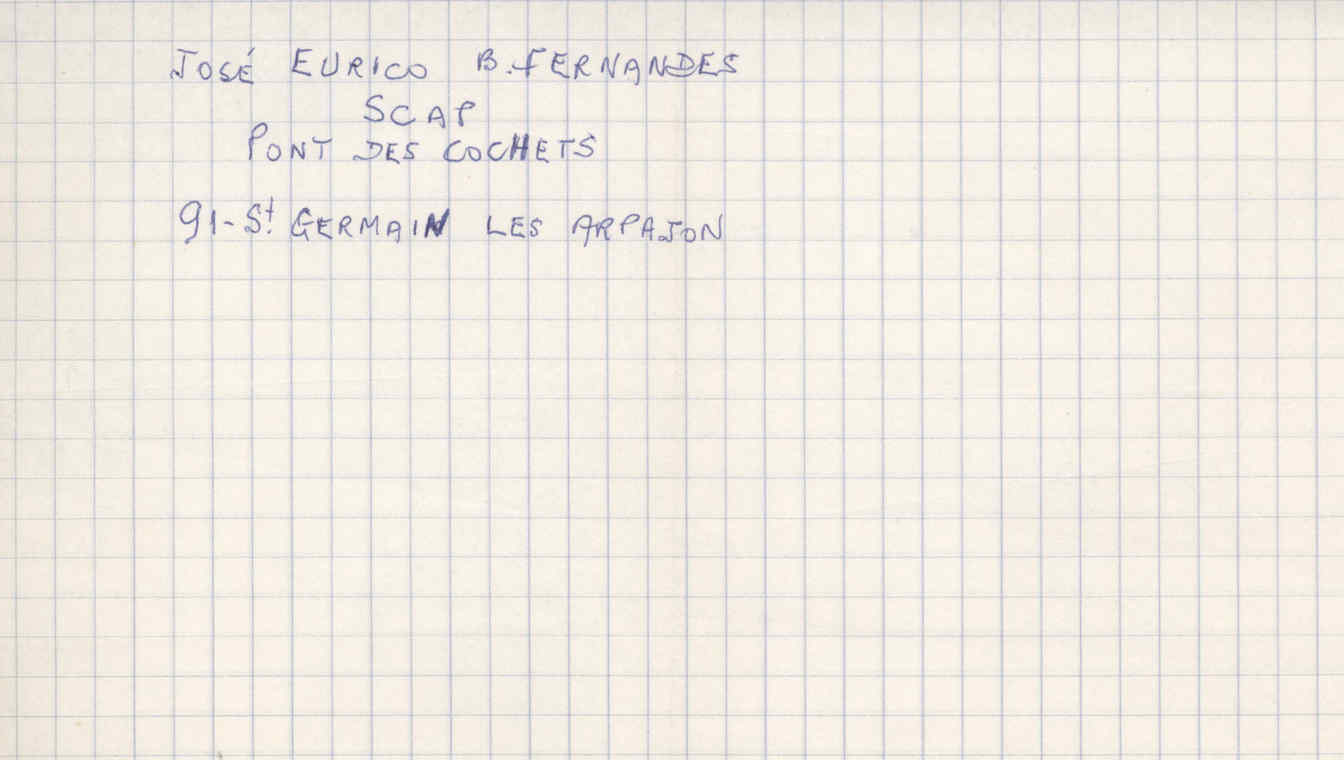 JOSÉ EURICO B. FERNANDES
SCAP
PONT DES COCHETS
91-St. GERMAIN LES ARPAJON